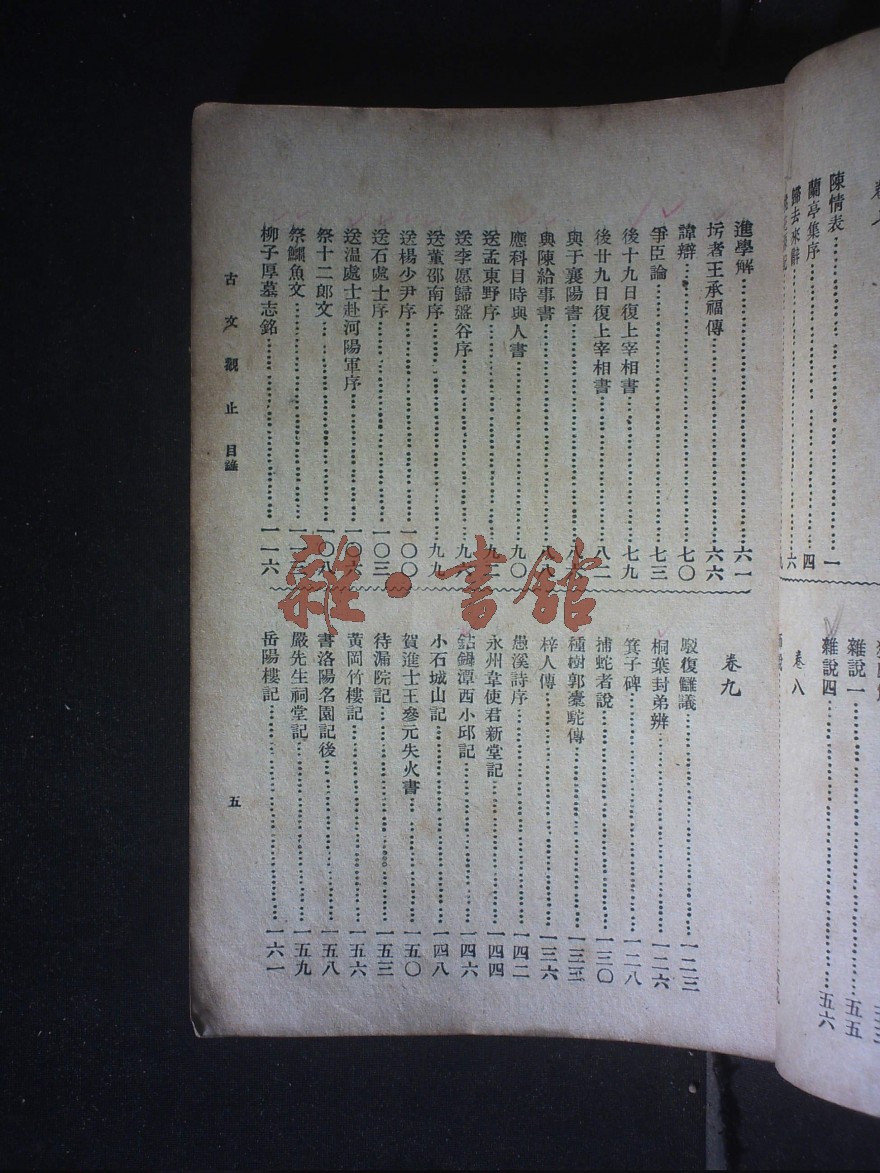 陳情表⋯⋯一
蘭亭集序⋯⋯四
歸去來辭⋯⋯六
雜說一⋯⋯五五
雜說四⋯⋯五六
卷八
進學解⋯⋯六一
圬者王承福傳⋯⋯六六
諱辯⋯⋯七〇
爭臣論⋯⋯七三
後十九日復上宰相書⋯⋯七九
後廿九日復上宰相書⋯⋯八二
與于襄陽書⋯⋯八六
與陳給事書⋯⋯八八
應科目時與人書⋯⋯九〇
送孟東野序⋯⋯九二
送李愿歸盤谷序⋯⋯九六
送董邵南序⋯⋯九九
送楊少尹序⋯⋯一〇〇
送石處士序⋯⋯一〇三
送溫處士赴河陽軍序⋯⋯一〇六
祭十二郎文⋯⋯一〇八
祭鱷魚文⋯⋯一一三
柳子厚墓志銘⋯⋯一一六
卷九
駁復讎議⋯⋯一二三
桐葉封弟辨⋯⋯一二六
箕子碑⋯⋯一二八
捕蛇者說⋯⋯一三〇
種樹郭橐駝傳⋯⋯一三三
梓人傳⋯⋯一三六
愚溪詩序⋯⋯一四二
永州韋使君新堂記⋯⋯一四四
鈷鉧潭西小邱記⋯⋯一四六
小石城山記⋯⋯一四八
賀進士王參元失火書⋯⋯一五〇
待漏院記⋯⋯一五三
黃岡竹樓記⋯⋯一五六
書洛陽名園記後⋯⋯一五八
嚴先生祠堂記⋯⋯一五九
岳陽樓記⋯⋯一六一
古文觀止 目錄
五
雜·書館